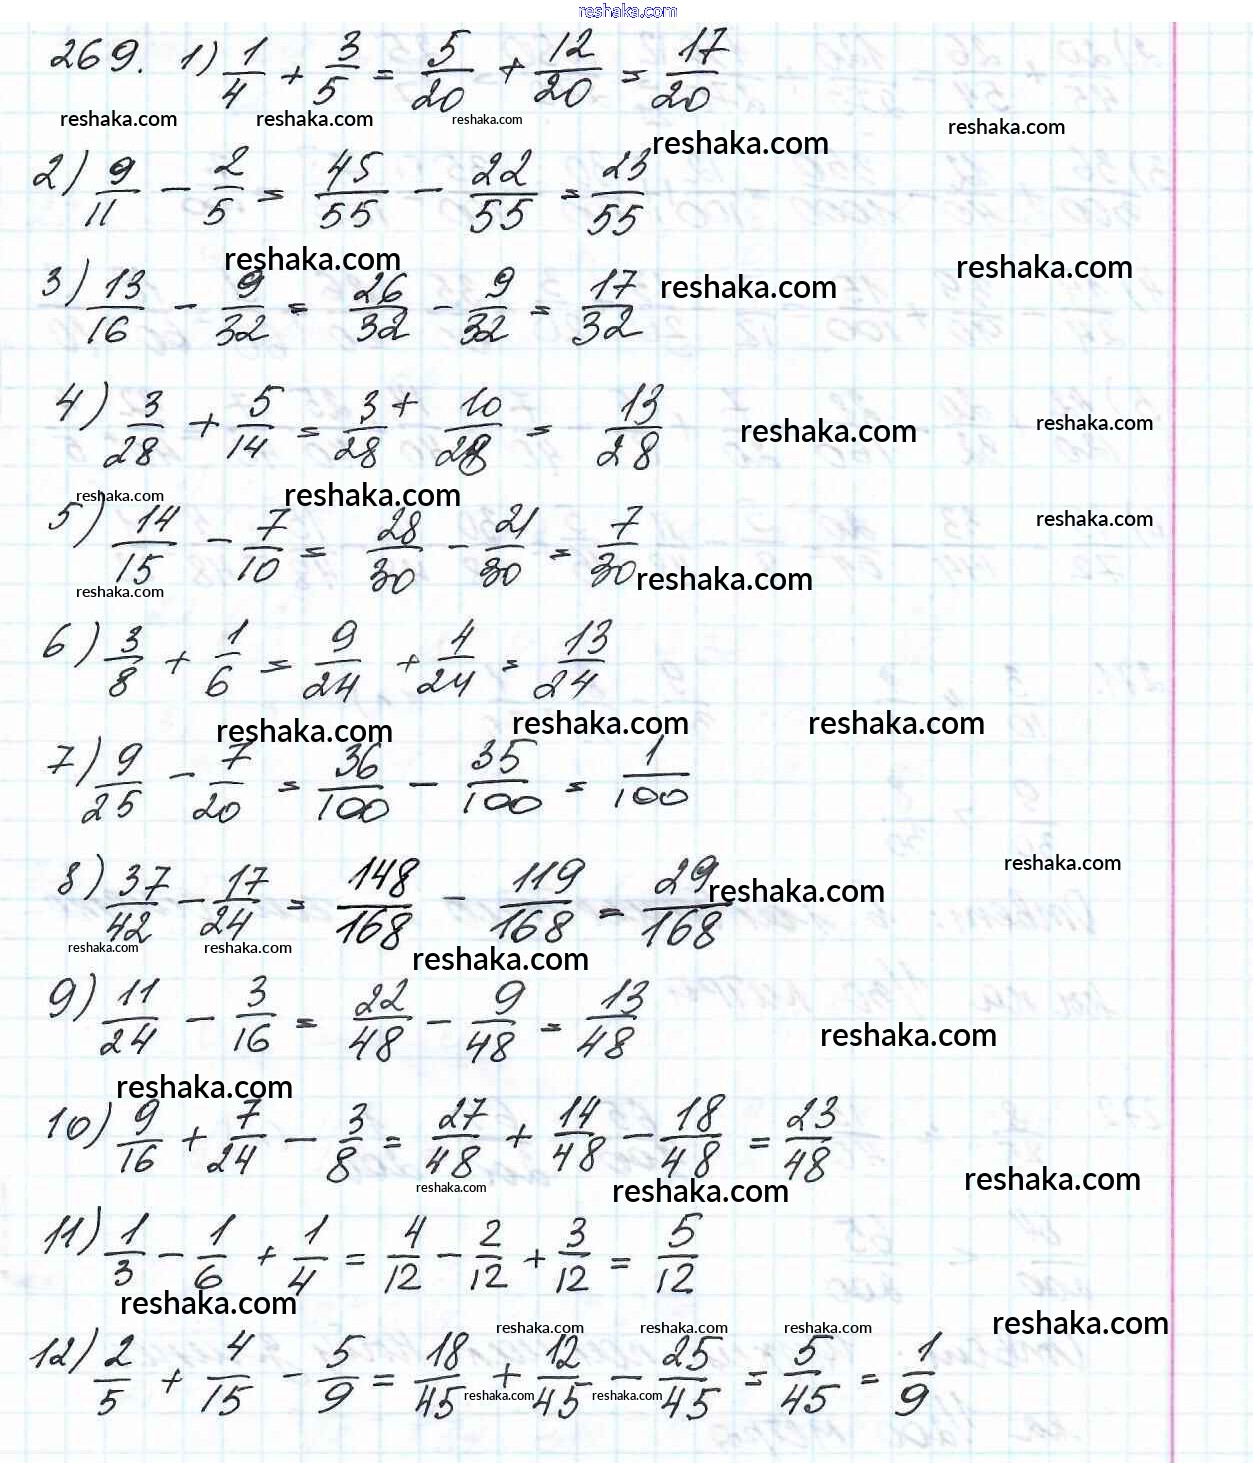 reshaka.com
269. 1) 1/4 + 3/5 = 5/20 + 12/20 = 17/20
reshaka.com reshaka.com reshaka.com reshaka.com reshaka.com
2) 9/11 - 2/5 = 45/55 - 22/55 = 23/55
reshaka.com reshaka.com reshaka.com
3) 13/16 - 9/32 = 26/32 - 9/32 = 17/32
4) 3/28 + 5/14 = 3/28 + 10/28 = 13/28
reshaka.com reshaka.com
reshaka.com reshaka.com reshaka.com
5) 14/15 - 7/10 = 28/30 - 21/30 = 7/30
reshaka.com reshaka.com
6) 3/8 + 1/6 = 9/24 + 4/24 = 13/24
reshaka.com reshaka.com reshaka.com
7) 9/25 - 7/20 = 36/100 - 35/100 = 1/100
reshaka.com
8) 37/42 - 17/24 = 148/168 - 119/168 = 29/168
reshaka.com
reshaka.com reshaka.com reshaka.com
9) 11/24 - 3/16 = 22/48 - 9/48 = 13/48
reshaka.com
reshaka.com
10) 9/16 + 7/24 - 3/8 = 27/48 + 14/48 - 18/48 = 23/48
reshaka.com reshaka.com reshaka.com
11) 1/3 - 1/6 + 1/4 = 4/12 - 2/12 + 3/12 = 5/12
reshaka.com
reshaka.com reshaka.com reshaka.com reshaka.com
12) 2/5 + 4/15 - 5/9 = 18/45 + 12/45 - 25/45 = 5/45 = 1/9
reshaka.com reshaka.com